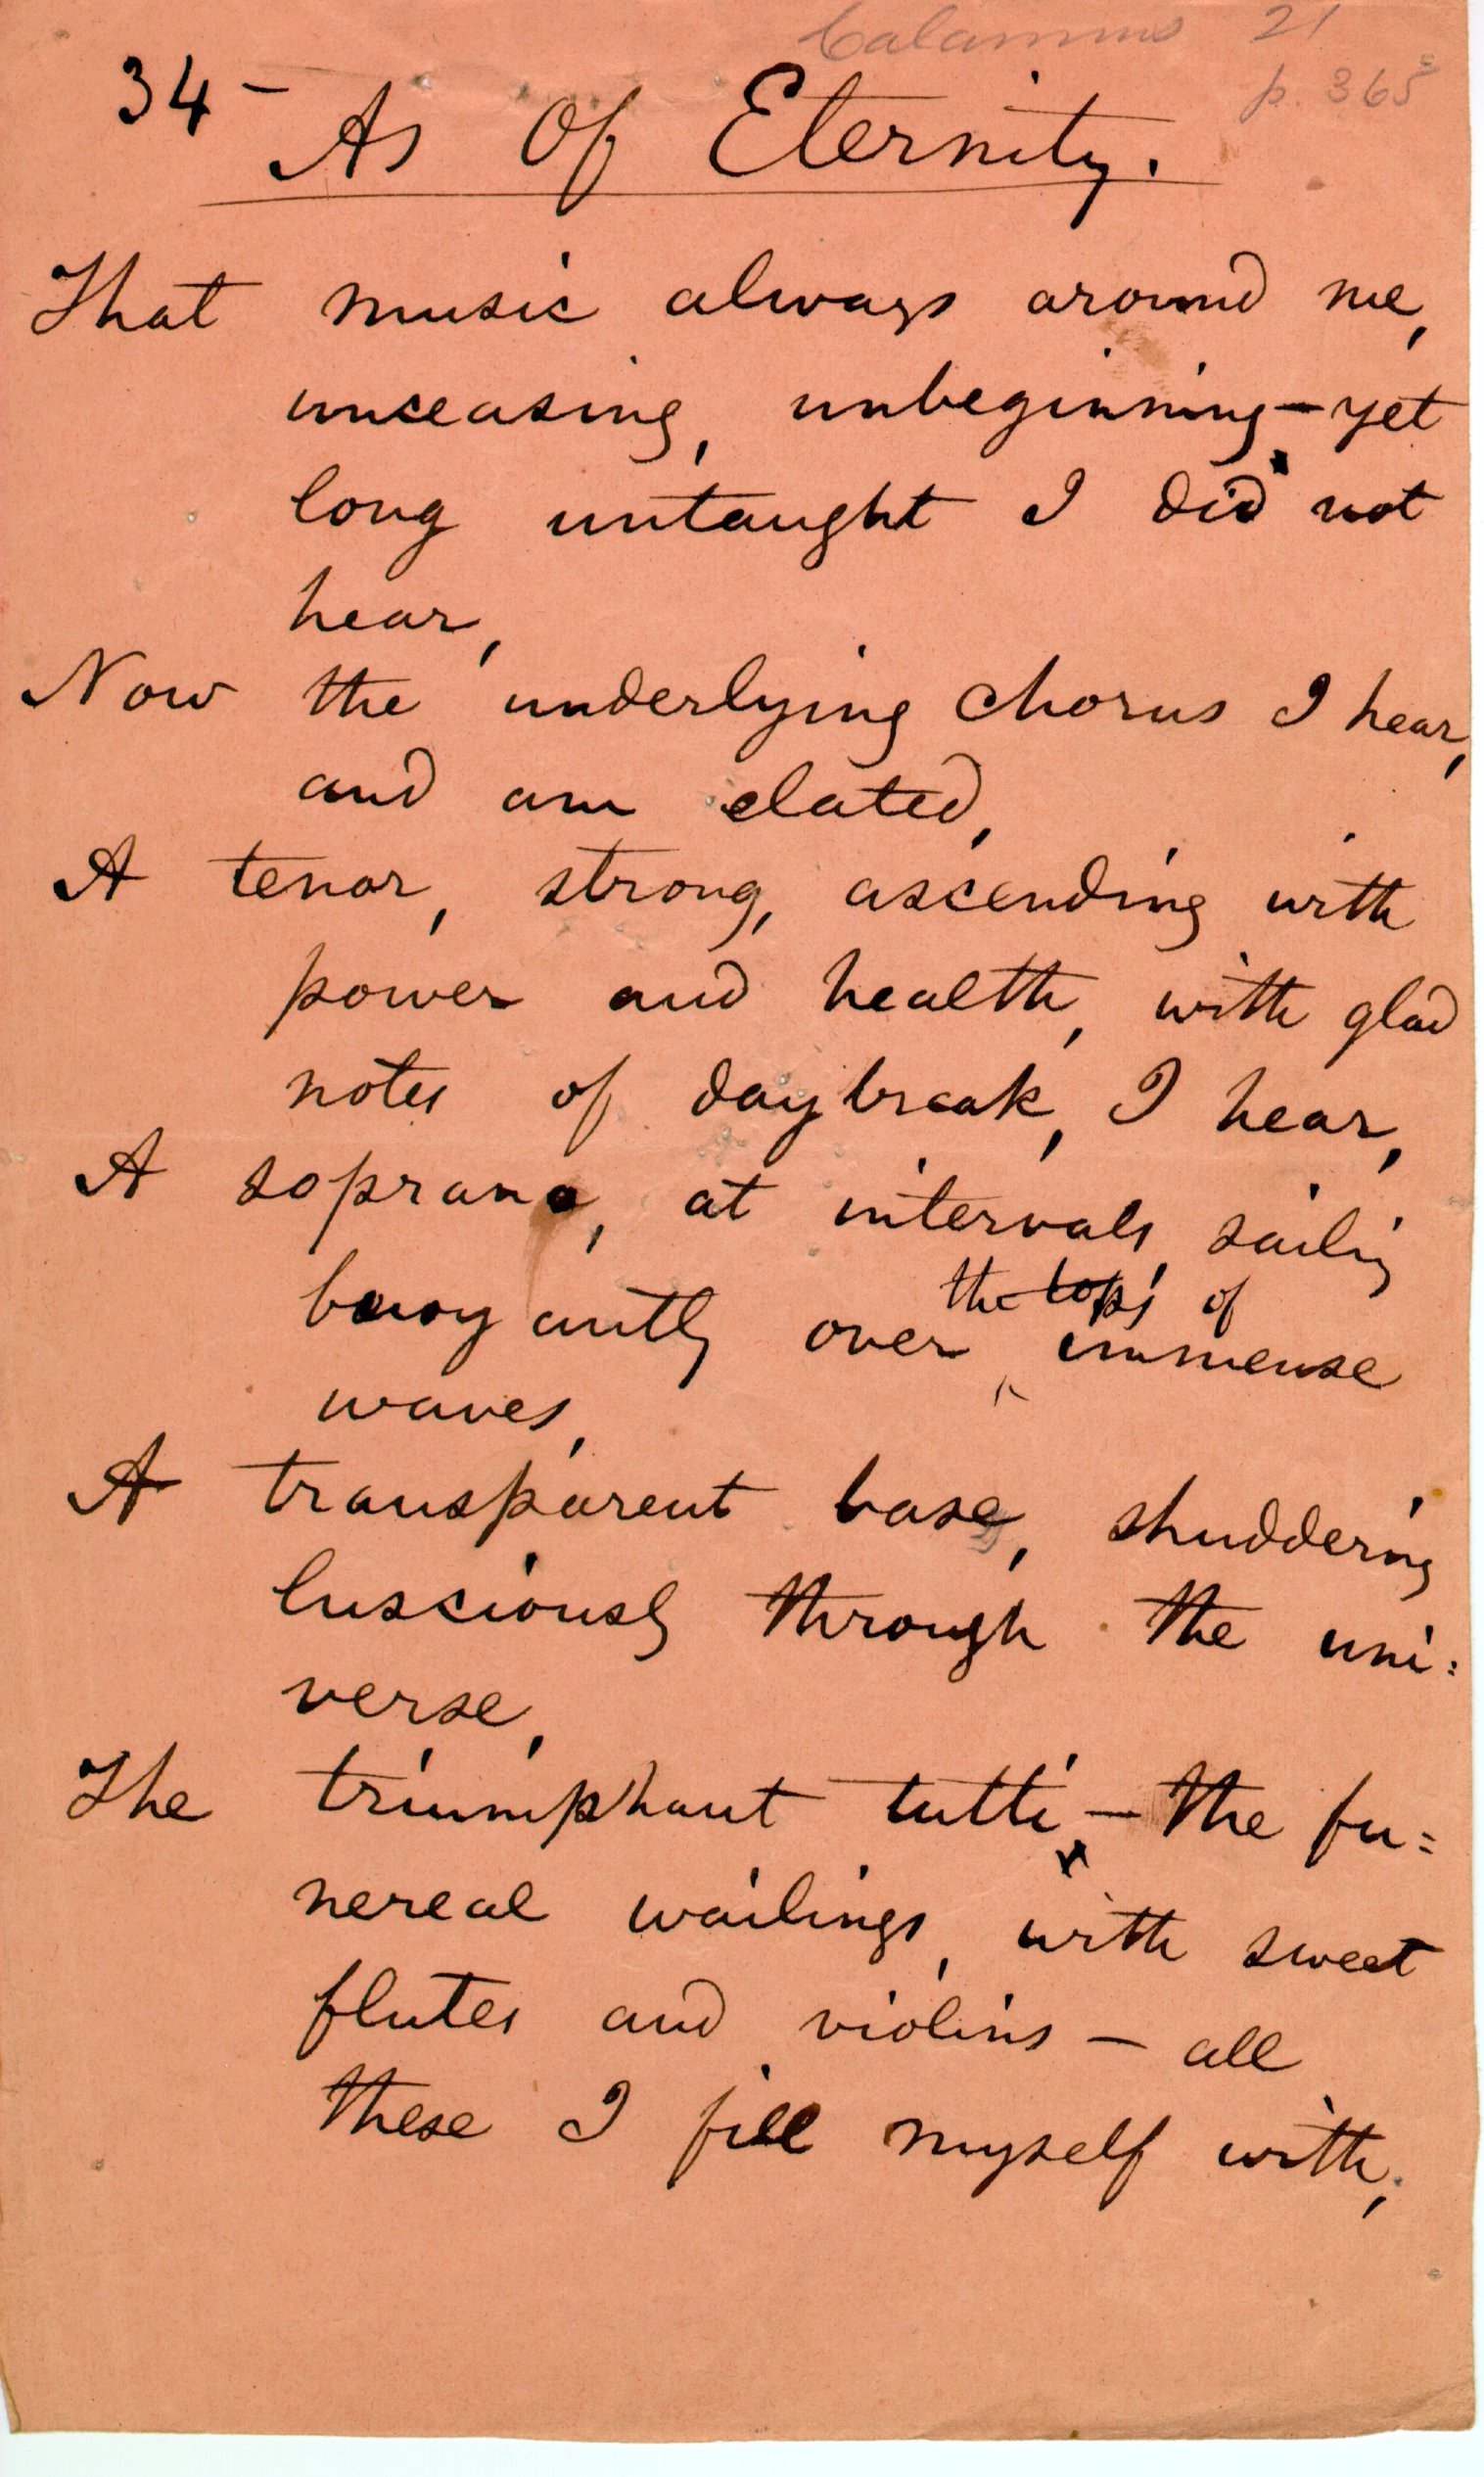 Calamus 21
p. 365
34 –
As Of Eternity.
That music always around me,
unceasing, unbeginning – yet
long untaught I did not
hear,
Now the underlying chorus I hear,
and am elated,
A tenor, strong, ascending with
power and health, with glad
notes of daybreak, I hear,
A soprano, at intervals, sailing
the tops of
buoyantly over ‸ immense
waves,
A transparent base, shuddering
lusciously through the uni=
verse,
The triumphant tutti – the fu=
nereal wailings, with sweet
flutes and violins – all
these I fill myself with,